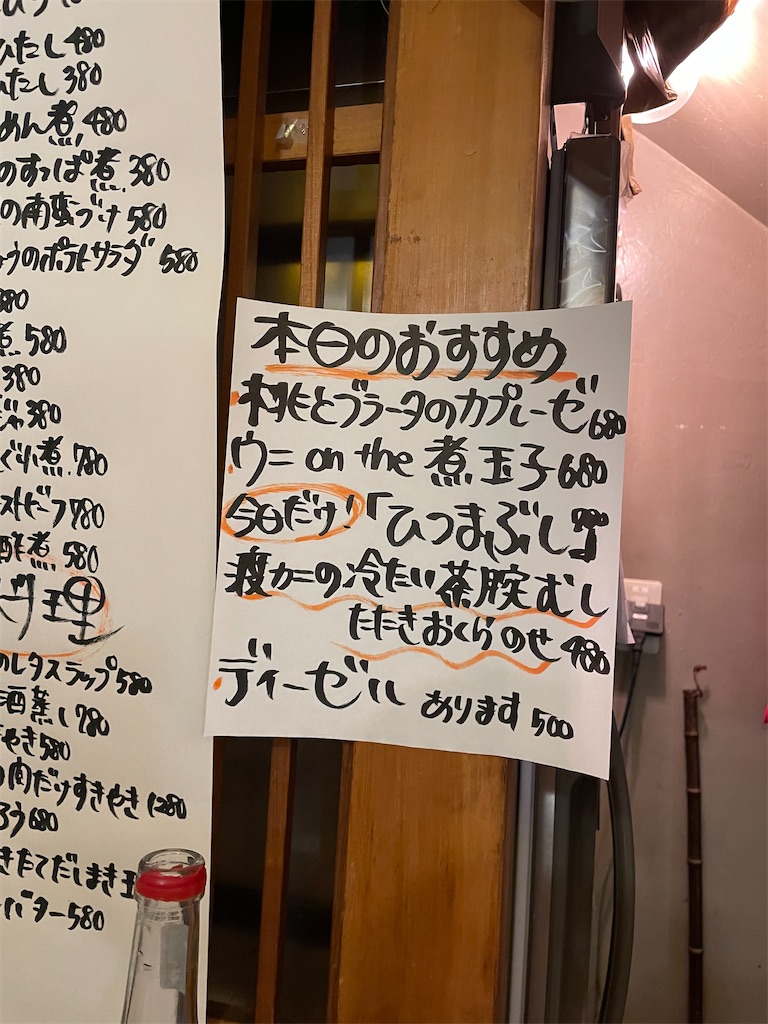 ひたし 480
ひたし 380
めん煮 480
のすっぱ煮 380
の南蛮づけ 580
ょうのポテトサラダ 580
380
煮 580
380
ジャ 380
ぐれ煮 780
ストビーフ 780
酢煮 580
理
のレタスラップ 580
酒蒸し 780
やき 580
肉だけすきやき 1280
ろう 680
きたてだしまき玉
バター 580
本日のおすすめ
桃とブラータのカプレーゼ 680
ウニ on the 煮玉子 680
今日だけ!「ひつまぶし」
渡カニの冷たい茶腕むし
たたきおくらのせ 480
ディーゼル あります 500